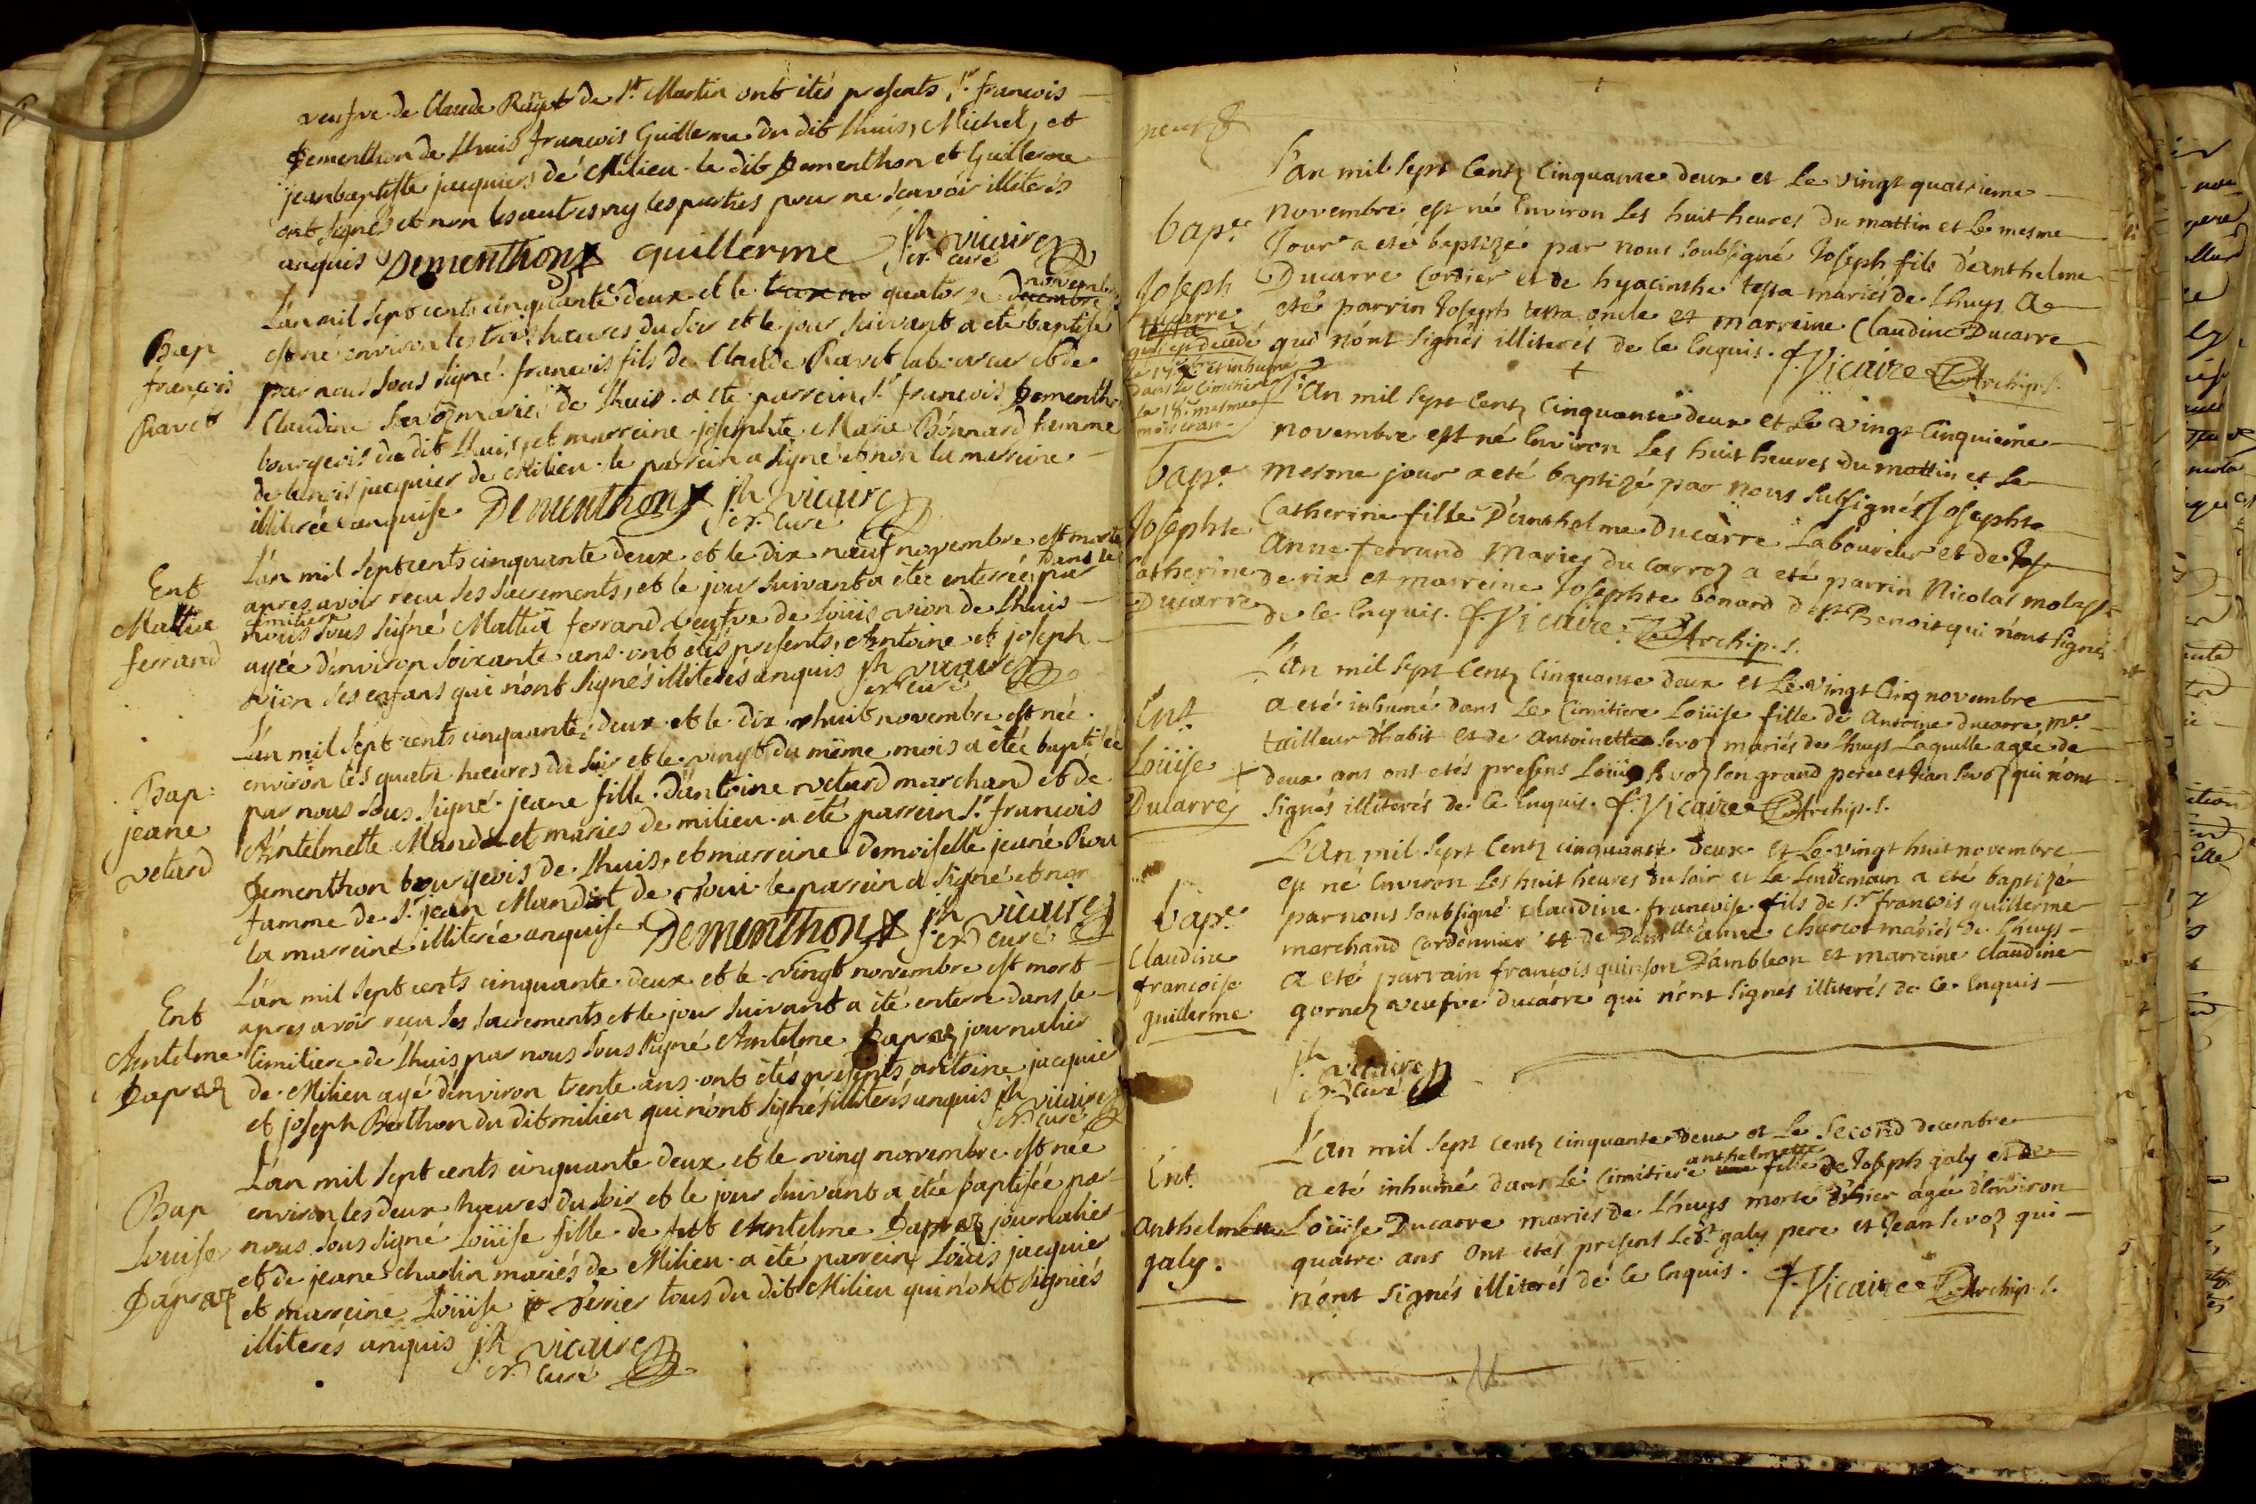 veufve de Claude Ravet de St Martin ont étés presents Sr francois
Dementhon de Lhuis francois Guillerme du dit Lhuis, Michel, et
jeanbaptiste jacquiers de Milieu le dit Dementhon et Guillerme
ont signés et non les autres ny les parties pour ne scavoir illiterés
anquis Dementhon guillerme jh vicaire
cr. curé
Bap
françois
Ravet
L'an mil sept cents cinquante deux et le quatorze novembre
est né environ les trois heures du soir et le jour suivant a été baptisé
par nous sous signé francois fils de Claude Ravet laboureur et de
Claudine Sevoz mariés de Lhuis a été parrein Sr francois Dementhon
bourgeois du dit Lhuis, et marreine josephte Marie Bonnard femme
de jacquier de Milieu le parrein a signé et non la marreine
illiterée anquise Dementhon jh vicaire
cr. curé
Ent
Mattia
ferrand
L'an mil sept cents cinquante deux et le dix neuf novembre est morte
apres avoir recu ses sacrements, et le jour suivant a étée enterrée dans le cimitiere par
nous sous signé Mattia ferrand veufve de Louis vion de Lhuis
agée d'environ soixante ans ont étés presents, Antoine et joseph
vion ses enfans qui n'ont signés illiterés anquis jh vicaire
cr. curé
Bap
jeane
vetard
L'an mil sept cents cinquante deux et le dix huit novembre est née
environ les quatre heures du soir et le vingt du même mois a étée baptisée
par nous sous signé jeane fille d'antoine vetard marchand et de
Antelmette Mandet mariés de milieu a été parrein Sr francois
Dementhon bourgeois de Lhuis, et marreine demoiselle jeane Riou
famme de Sr jean Mandet de le parrein a signé et non
la marreine illiterée anquise Dementhon jh vicaire
cr. curé
Ent
Antelme
Dapraz
L'an mil sept cents cinquante deux et le vingt novembre est mort
apres avoir recu ses sacrements et le jour suivant a été enterré dans le
Cimitiere de Lhuis par nous sous signé Antelme Dapraz journalier
de Milieu agé d'environ trente ans ont étés présents antoine jacquier
et joseph Berthon du dit milieu qui n'ont signés illiterés anquis jh vicaire
cr. curé
Bap
Louise
Dapraz
L'an mil sept cents cinquante deux et le ving novembre est née
environ les deux heures du soir et le jour suivant a étée baptisée par
nous sous signé Loüise fille de fut Antelme Dapraz journalier
et de jeane chardin mariés de Milieu a été parrein Loüis jacquier
et marreine Loüise perier tous du dit Milieu qui n'ont signiés
illiterés anquis jh vicaire
cr. curé
neuf
bapt.
Joseph
Ducarre
qui est decedé
le 17e et inhumé
dans le cimitiere
le 18e mesme
mois et an
L'an mil sept Centz Cinquante deux et Le vingt quatrieme
novembre est né Environ Les huit heures du mattin et Le mesme
Jour a eté baptizé par nous soubsigné Joseph fils d'anthelme
Ducarre Cordier et de hyacinthe testa mariés de Lhuys a
eté parrin Joseph testa oncle et marreine Claudine Ducarre
qui n'ont signés illiterés de Ce Enquis. J. Vicaire Archip.
bapt.
Josephte
Catherine
Ducarre
L'an mil sept Centz Cinquante deux et Le vingt Cinquieme
novembre est né Environ Les huit heures du mattin et Le
mesme jour a eté baptizé par nous subsignés Josephte
Catherine fille D'anthelme Ducarre Laboureur et de Jos
anne ferrand Mariés du Carroz a eté parrin Nicolas molasse
de rix et marreine Josephte bonard de St Benoit qui n'ont signés
de Ce Enquis. J. Vicaire Archip.
Ent.
Loüise
Ducarre
L'an mil sept Centz Cinquante deux et Le vingt Cinq novembre
a eté inhumé dans Le Cimitiere Loüise fille de Antoine ducarre me
tailleur d'habit et de antoinette Sevoz mariés de Lhuys Laquelle agée de
deux ans ont etés presens Loüis Sevoz son grand pere et Jean Sevoz qui n'ont
signés illiterés de Ce Enquis. J. Vicaire Archip.
bapt.
Claudine
francoise
guillerme
L'an mil sept Centz cinquante deux et Le vingt huit novembre
est né Environ Les huit heures du soir et Le Lendemain a eté baptizé
par nous soubsigné claudine francoise fils de Sr francois guillerme
marchand Cordonnier et de Damlle anne Charcot mariés de Lhuys
a eté parrain francois quinson D'ambleon et marreine claudine
gornez veufve ducarre qui n'ont signés illiterés de Ce Enquis
jh vicaire
cr. curé
Ent.
Anthelmette
galy.
L'an mil sept centz cinquante deux et Le second decembre
a eté inhumé dans Le Cimitiere anthelmette fille de Joseph galy et de
Loüise Ducarre mariés de Lhuys morte d'hier agée d'Environ
quatre ans ont etés presens Le dt galy pere et Jean Sevoz qui
n'ont signés illiterés de Ce Enquis. J. Vicaire Archip.